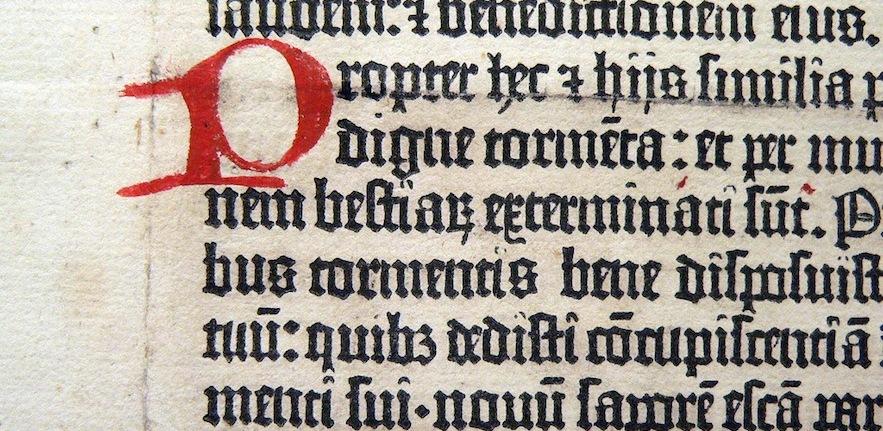 laudem: ⁊ benedictionem eius.
Propter hec ⁊ hijs similia p
digne tormēta: et per mu
nem bestiaꝝ exterminati sūt. P
bus tormentis bene disposuist
tuū: quibꝫ dedisti cōcupiscentiā
menti sui· nouū saporē escā par